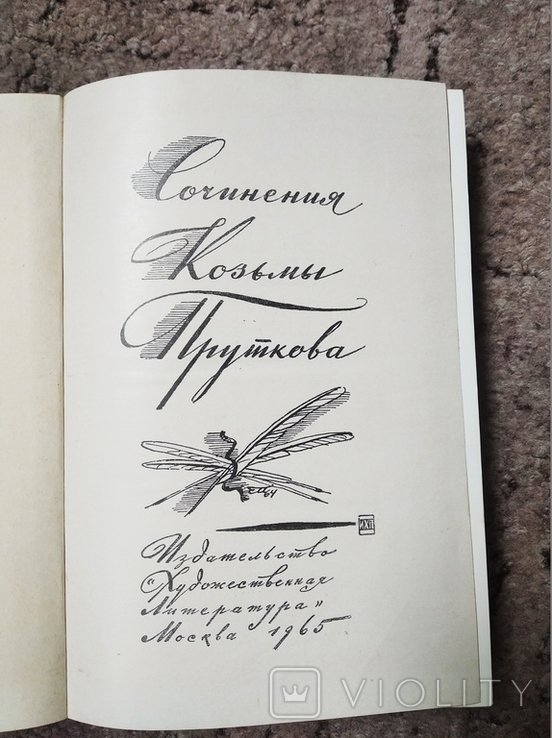 Сочинения
Козьмы
Пруткова
Издательство
"Художественная
Литература"
Москва 1965
VIOLITY